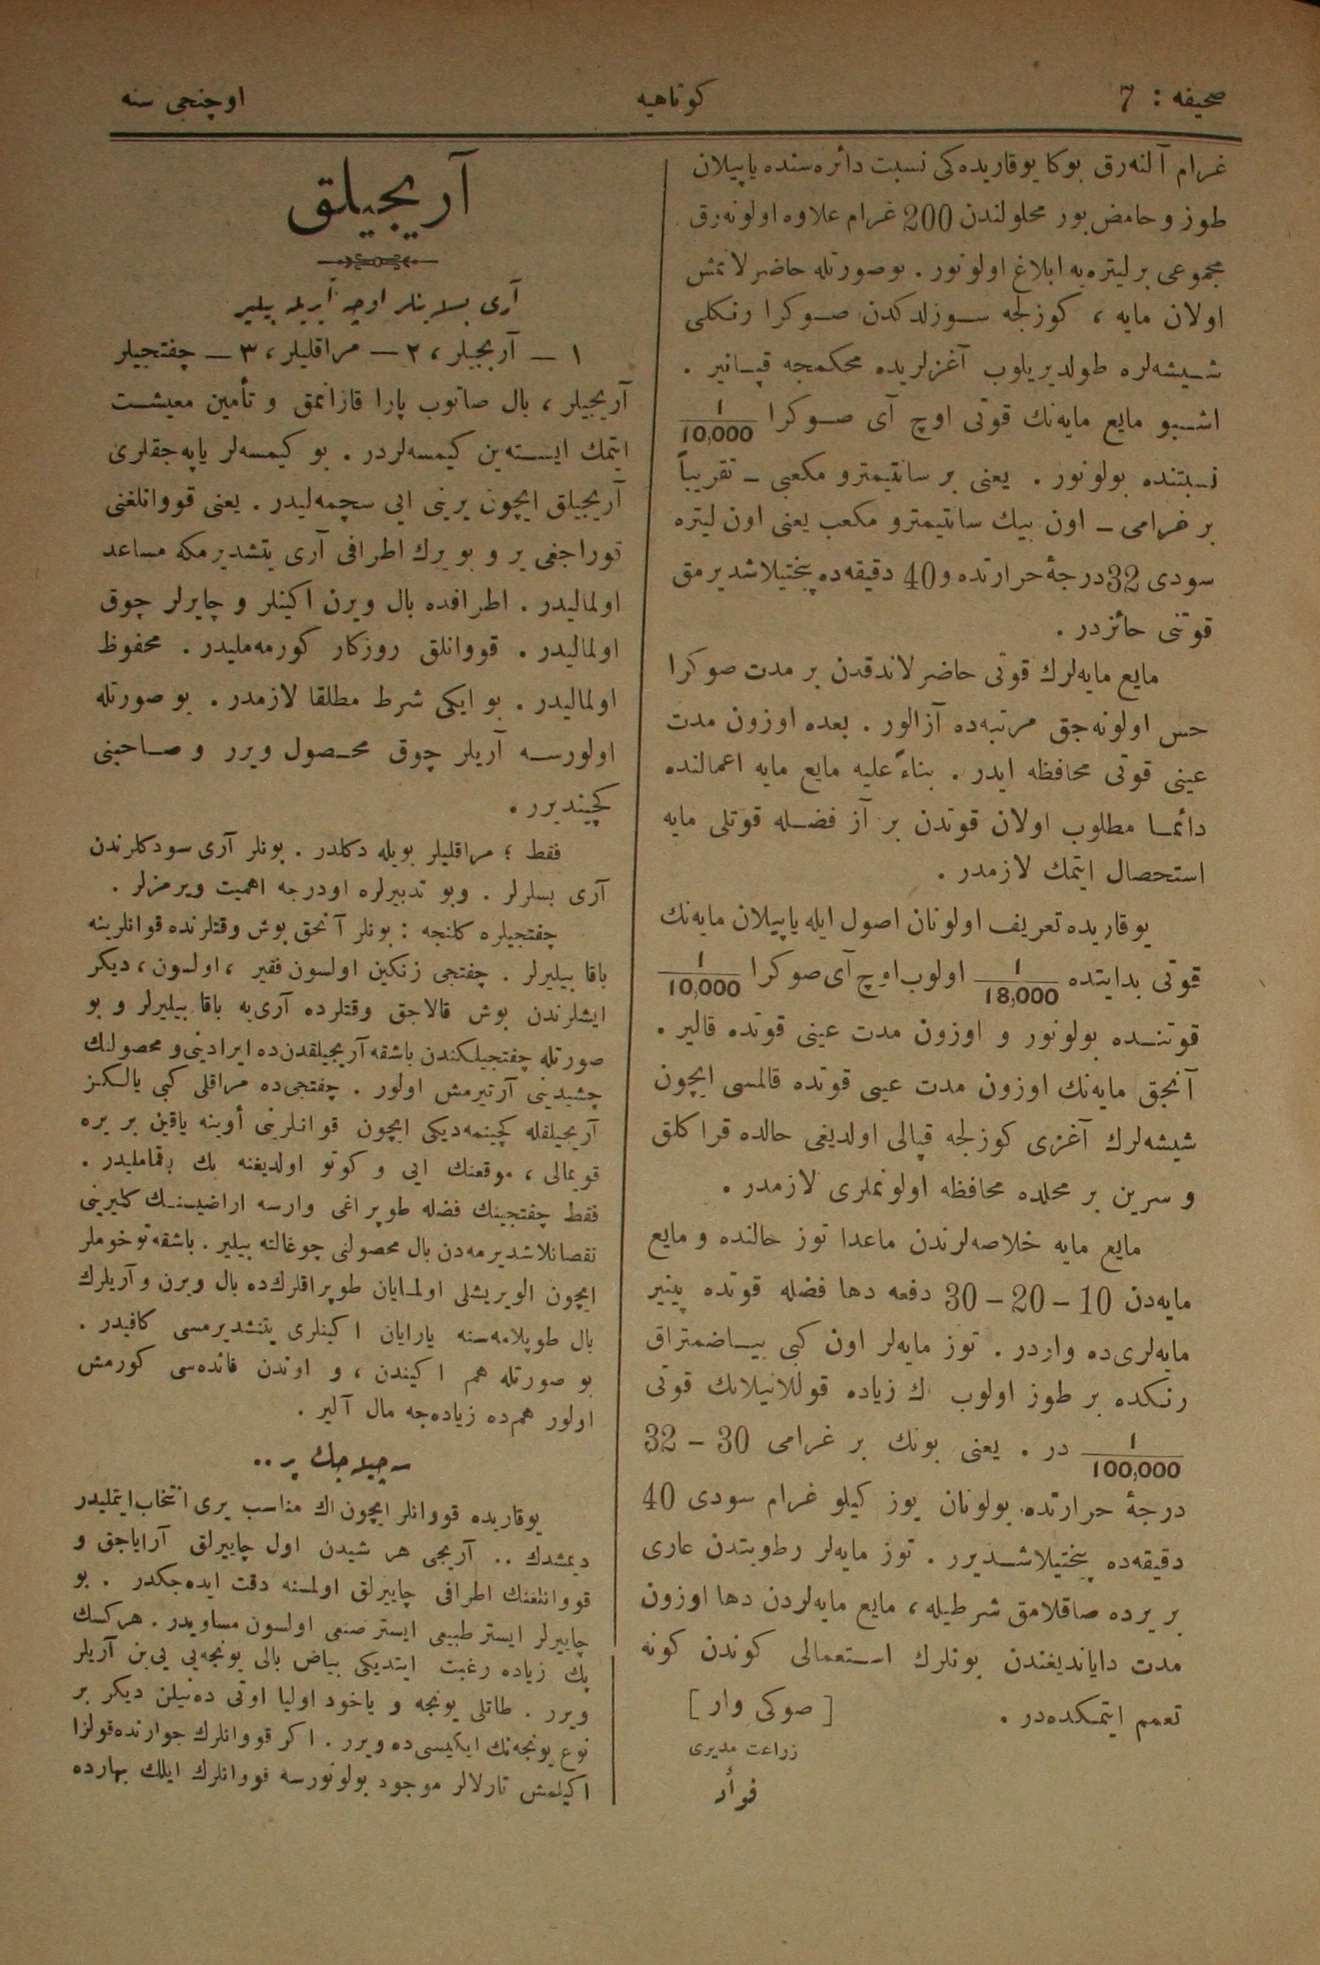 صحیفه : 7
كوتاهیه
اوچنجی سنه
غرام آلنه‌رق بوكا یوقاریده‌كی نسبت دائره‌سنده یاپیلان
طوز و حامض بور محلولندن 200 غرام علاوه اولونه‌رق
مجموعی بر لیتره‌یه ابلاغ اولونور . بو صورتله حاضرلانمش
اولان مایه ، كوزلجه سوزلدكدن صوكرا رنكلی
شیشه‌لره طولدیریلوب آغزلریده محكمجه قپانیر .
اشبو مایع مایه‌نك قوتی اوچ آی صوكرا ١/10,000
نسبتنده بولونور . یعنی بر سانتیمترو مكعبی ــ تقریباً
بر غرامی ــ اون بیك سانتیمترو مكعب یعنی اون لیتره
سودی 32 درجهٔ حرارتده و 40 دقیقه‌ده پختیلاشدیرمق
قوتنی حائزدر .
مایع مایه‌لرك قوتی حاضرلاندقدن بر مدت صوكرا
حس اولونه‌جق مرتبه‌ده آزالور . بعده اوزون مدت
عینی قوتی محافظه ایدر . بناءً علیه مایع مایه اعمالنده
دائما مطلوب اولان قوتدن بر آز فضله قوتلی مایه
استحصال ایتمك لازمدر .
یوقاریده تعریف اولونان اصول ایله یاپیلان مایه‌نك
قوتی بدایتده ١/18,000 اولوب اوچ آی صوكرا ١/10,000
قوتنده بولونور و اوزون مدت عینی قوتده قالیر .
آنجق مایه‌نك اوزون مدت عینی قوتده قالمسی ایچون
شیشه‌لرك آغزی كوزلجه قپالی اولدیغی حالده قراكلق
و سرین بر محلده محافظه اولونملری لازمدر .
مایع مایه خلاصه‌لرندن ماعدا توز حالنده و مایع
مایه‌دن 10 – 20 – 30 دفعه دها فضله قوتده پینیر
مایه‌لری‌ده واردر . توز مایه‌لر اون كبی بیاضمتراق
رنكده بر طوز اولوب اك زیاده قوللانیلانك قوتی
١/100,000 در . یعنی بونك بر غرامی 30 – 32
درجهٔ حرارتده بولونان یوز كیلو غرام سودی 40
دقیقه‌ده پختیلاشدیرر . توز مایه‌لر رطوبتدن عاری
بر یرده صاقلامق شرطیله ، مایع مایه‌لردن دها اوزون
مدت دایاندیغندن بونلرك استعمالی كوندن كونه
تعمم ایتمكده‌در .
[ صوكی وار ]
زراعت مدیری
فوأد
آریجیلق
آری بسلاینلر اوچه آیریله بیلیر
١ ــ آریجیلر ، ٢ ــ مراقلیلر ، ٣ ــ چفتجیلر
آریجیلر ، بال صاتوب پارا قازانمق و تأمین معیشت
ایتمك ایسته‌ین كیمسه‌لردر . بو كیمسه‌لر یاپه‌جقلری
آریجیلق ایچون یرینی ایی سچمه‌لیدر . یعنی قووانلغنی
قوراجغی یر و بو یرك اطرافی آری یتشدیرمكه مساعد
اولمالیدر . اطرافده بال ویرن اكینلر و چایرلر چوق
اولمالیدر . قووانلق روزكار كورمه‌ملیدر . محفوظ
اولمالیدر . بو ایكی شرط مطلقا لازمدر . بو صورتله
اولورسه آریلر چوق محصول ویرر و صاحبنی
كچیندیرر .
فقط ؛ مراقلیلر بویله دكلدر . بونلر آری سودكلرندن
آری بسلرلر . وبو تدبیرلره اودرجه اهمیت ویرمزلر .
چفتجیلره كلنجه : بونلر آنجق بوش وقتلرنده قوانلرینه
باقا بیلیرلر . چفتجی زنكین اولسون فقیر ، اولسون ، دیكر
ایشلرندن بوش قالاجق وقتلرده آری‌یه باقا بیلیرلر و بو
صورتله چفتجیلكندن باشقه آریجیلقدن‌ده ایرادینی و محصولنك
چشیدینی آرتیرمش اولور . چفتجی‌ده مراقلی كبی یالكز
آریجیلقله كچینمه‌دیكی ایچون قوانلرینی أوینه یاقین بر یره
قویمالی ، موقعنك ایی و كوتو اولدیغنه پك باقمامالیدر .
فقط چفتجینك فضله طوپراغی وارسه اراضیسنك كلیرینی
نقصانلاشدیرمه‌دن بال محصولنی چوغالته بیلیر . باشقه توخوملر
ایچون الویریشلی اولمایان طوپراقلرك‌ده بال ویرن و آریلرك
بال طوپلامه‌سنه یارایان اكینلری یتشدیرمسی كافیدر .
بو صورتله هم اكیندن ، و اوندن فائده‌سی كورمش
اولور هم‌ده زیاده‌جه مال آلیر .
سچیله‌جك یر ..
یوقاریده قووانلر ایچون اك مناسب یری انتخاب ایتملیدر
دیمشدك .. آریجی هر شیدن اول چاییرلق آرایاجق و
قووانلغنك اطرافی چاییرلق اولمسنه دقت ایده‌جكدر . بو
چاییرلر ایستر طبیعی ایستر صنعی اولسون مساویدر . هركسك
پك زیاده رغبت ایتدیكی بیاض بالی یونجه‌یی ییین آریلر
ویرر . طاتلی یونجه و یاخود اولیا اوتی ده‌نیلن دیكر بر
نوع یونجه‌نك ایكیسی‌ده ویرر . اكر قووانلرك جوارنده قولزا
اكیلمش تارلالر موجود بولونورسه قووانلرك ایلك بهارده